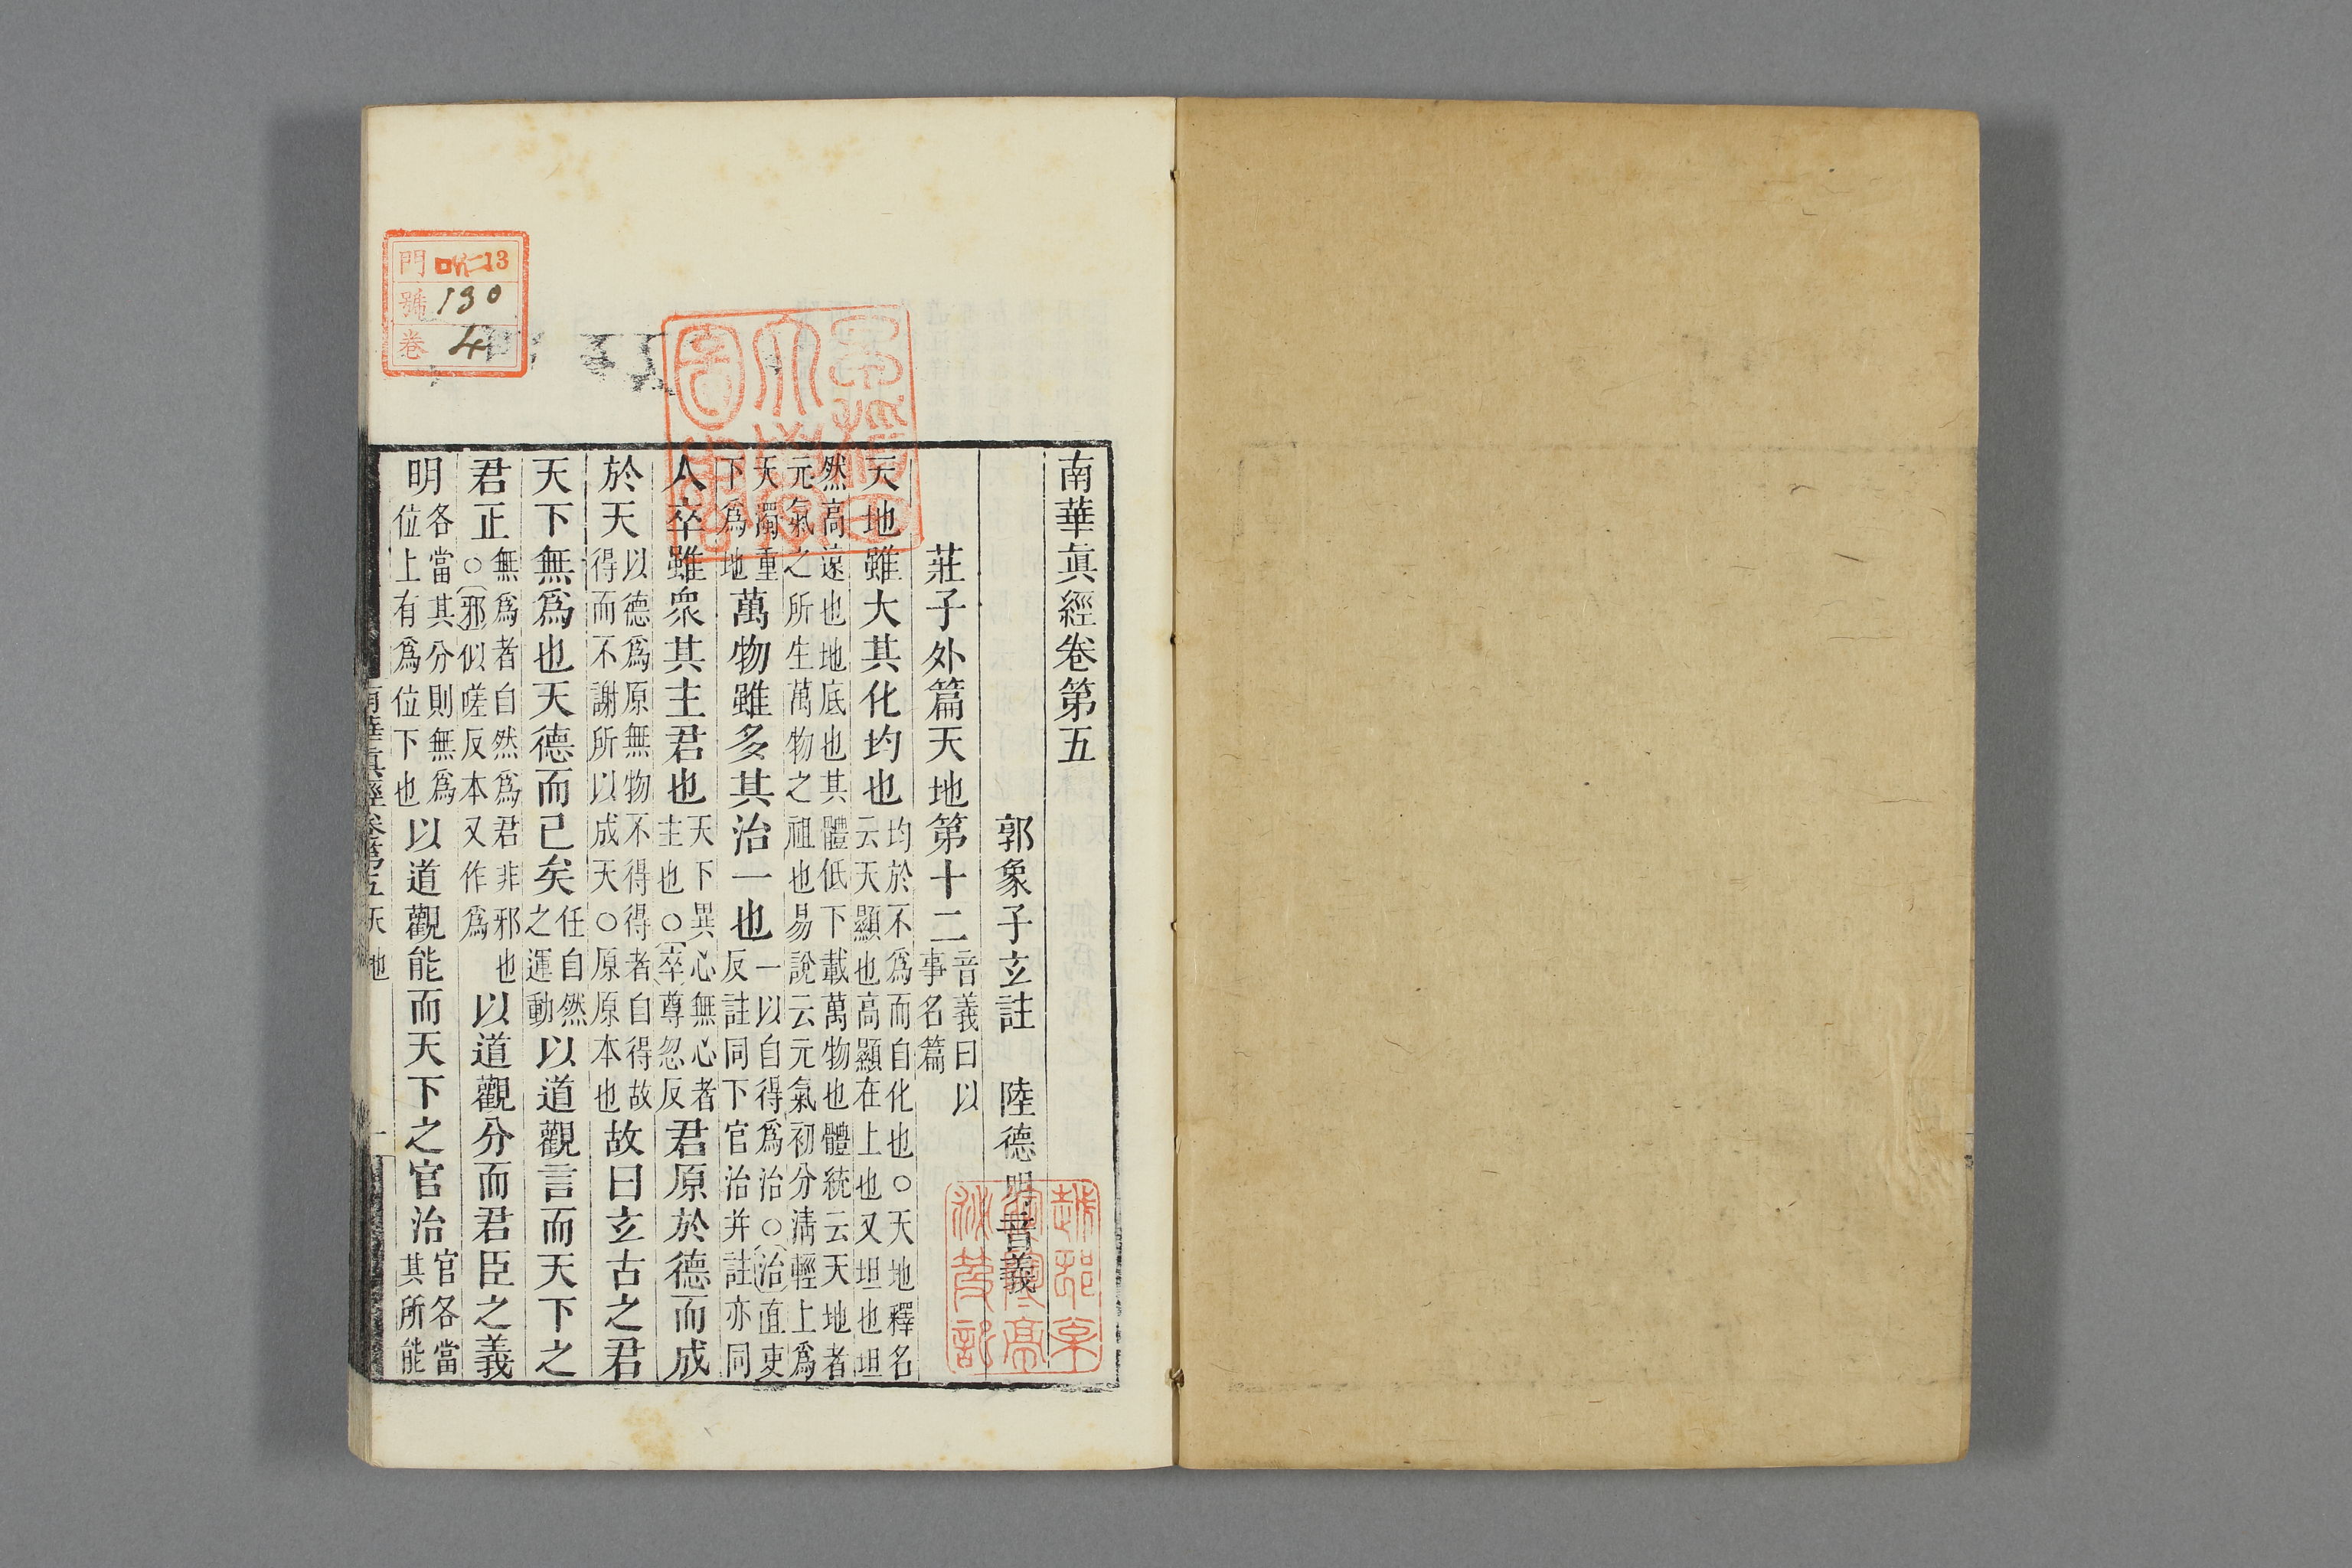 南華眞經卷第五
郭象子玄註　陸德明音義
莊子外篇天地第十二音義曰以事名篇
天地雖大其化均也均於不爲而自化也○天地釋名云天顯也高顯在上也又坦也坦
然高遠也地底也其體低下載萬物也體統云天地者元氣之所生萬物之祖也易說云元氣初分淸輕上爲
天濁重下爲地萬物雖多其治一也一以自得爲治○治直吏反註同下官治并註亦同
人卒雖衆其主君也天下異心無心者主也○卒尊忽反君原於德而成
於天以德爲原無物不得得者自得故得而不謝所以成天○原原本也故曰玄古之君
天下無爲也天德而已矣任自然之運動以道觀言而天下之
君正無爲者自然爲君非邪也○邪似嗟反本又作爲以道觀分而君臣之義
明各當其分則無爲位上有爲位下也以道觀能而天下之官治官各當其所能
南華眞經卷第五 天地 一
門 13
號 130
卷 4